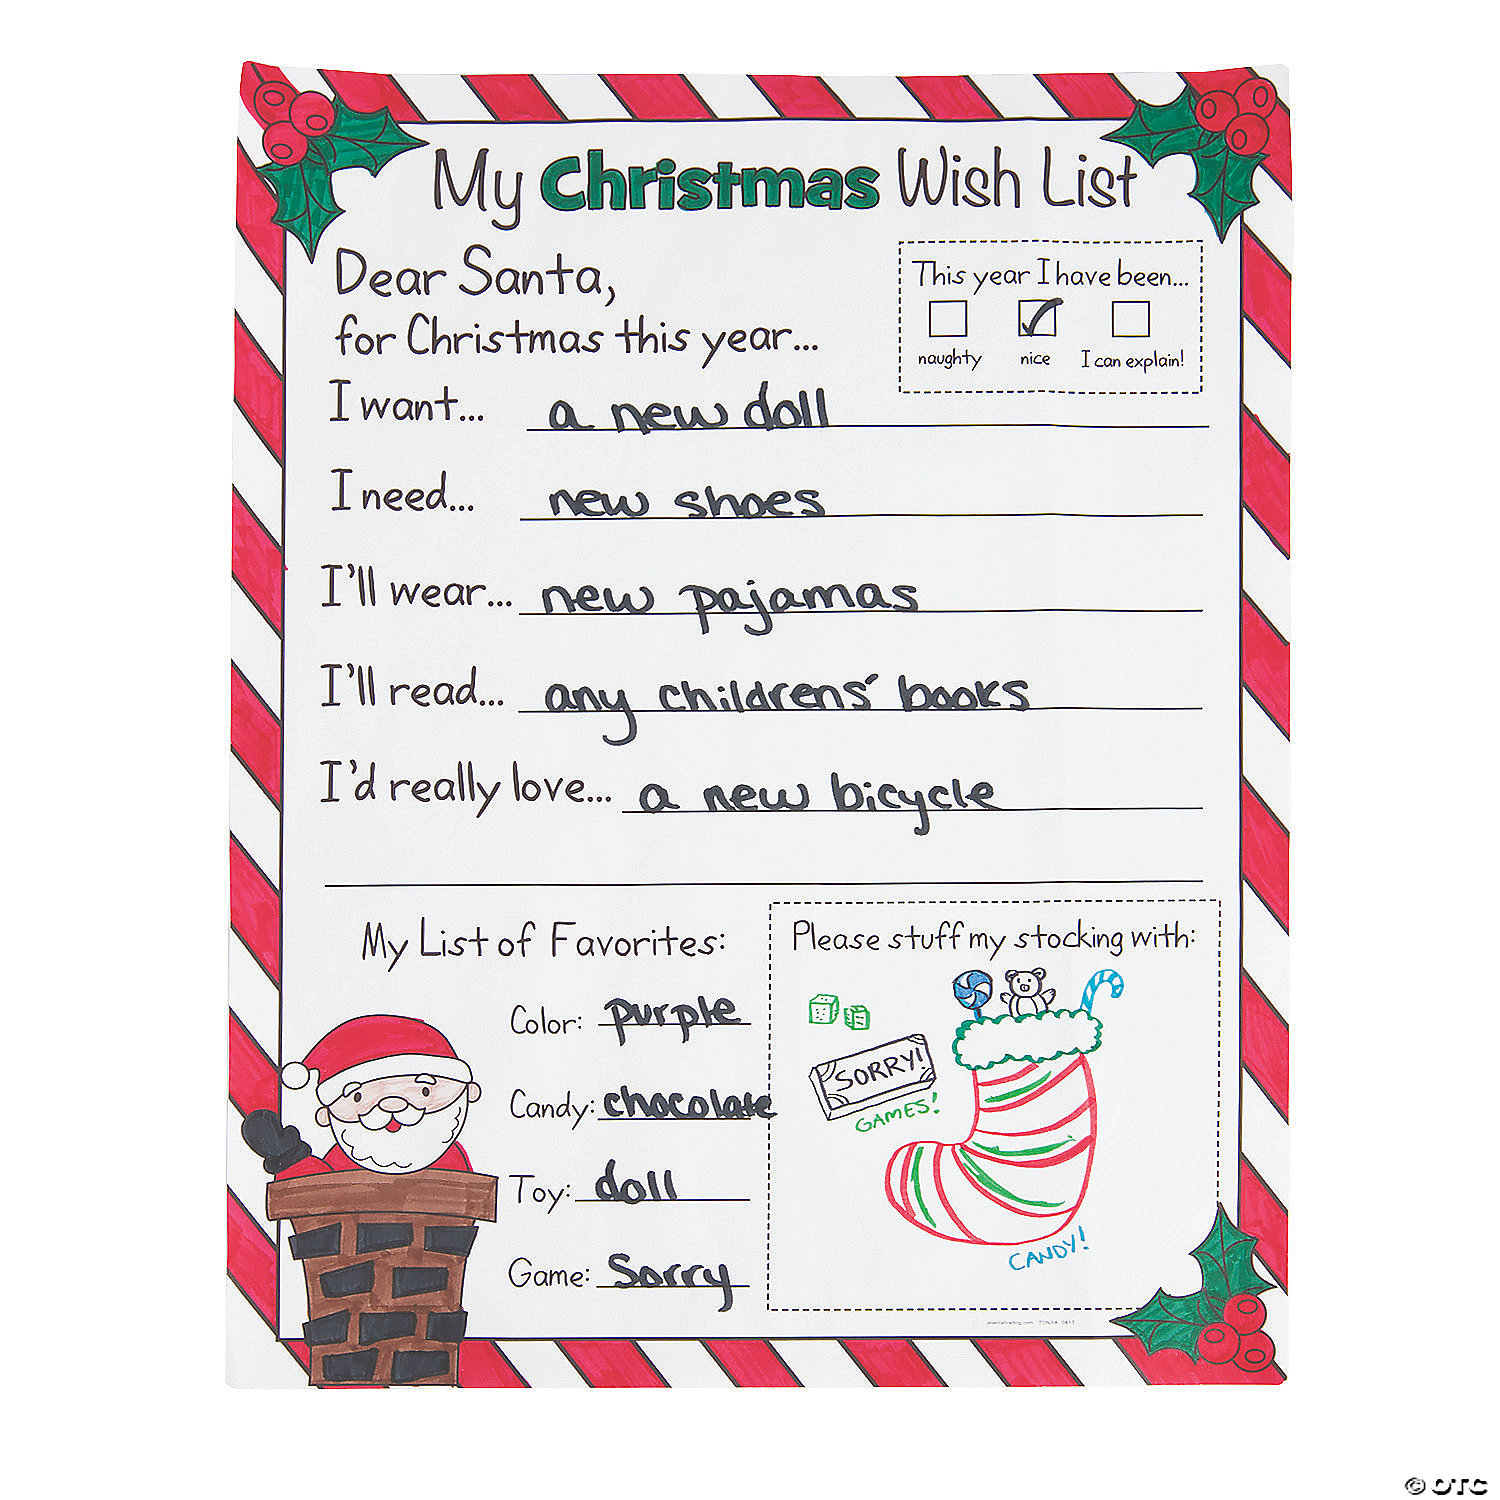 My Christmas Wish List
Dear Santa,
for Christmas this year...
This year I have been...
naughty nice I can explain!
I want... a new doll
I need... new shoes
I'll wear... new pajamas
I'll read... any childrens' books
I'd really love... a new bicycle
My List of Favorites:
Color: purple
Candy: chocolate
Toy: doll
Game: Sorry
Please stuff my stocking with:
SORRY!
GAMES!
CANDY!
© OTC